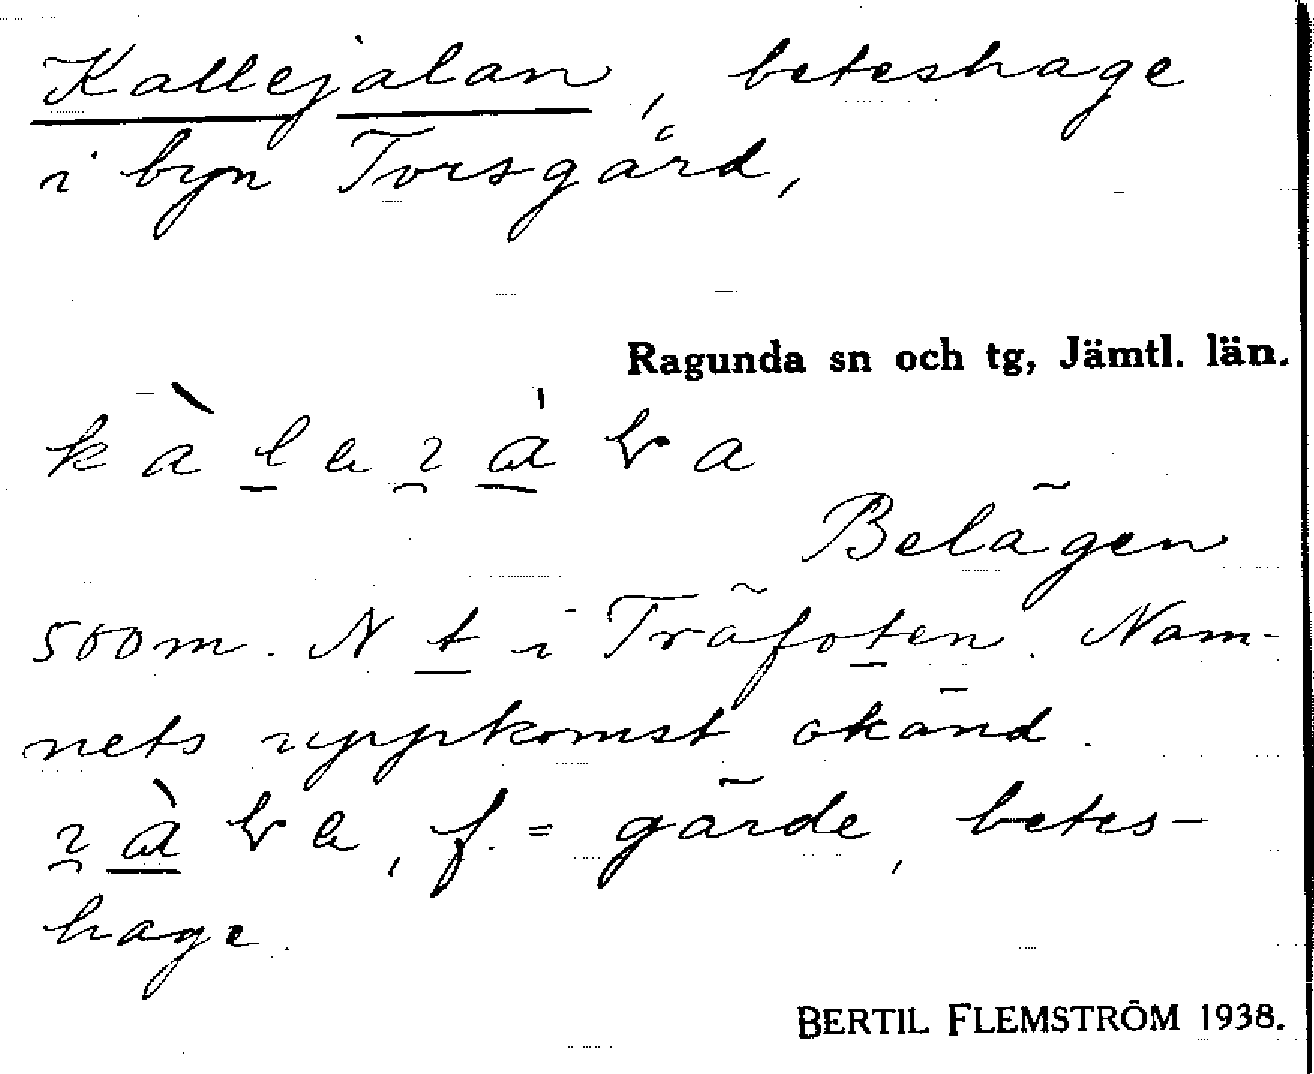 Kallejalan, beteshage
i byn Torsgård,
Ragunda sn och tg, Jämtl. län.
Belägen
500m. N t i Träfoten. Nam-
nets uppkomst okänd.
f. = gärde, betes-
hage.
BERTIL FLEMSTRÖM 1938.